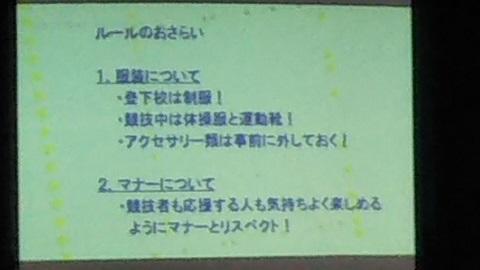 ルールのおさらい
1. 服装について
・登下校は制服！
・競技中は体操服と運動靴！
・アクセサリー類は事前に外しておく！
2. マナーについて
・競技者も応援する人も気持ちよく楽しめる
ようにマナーとリスペクト！